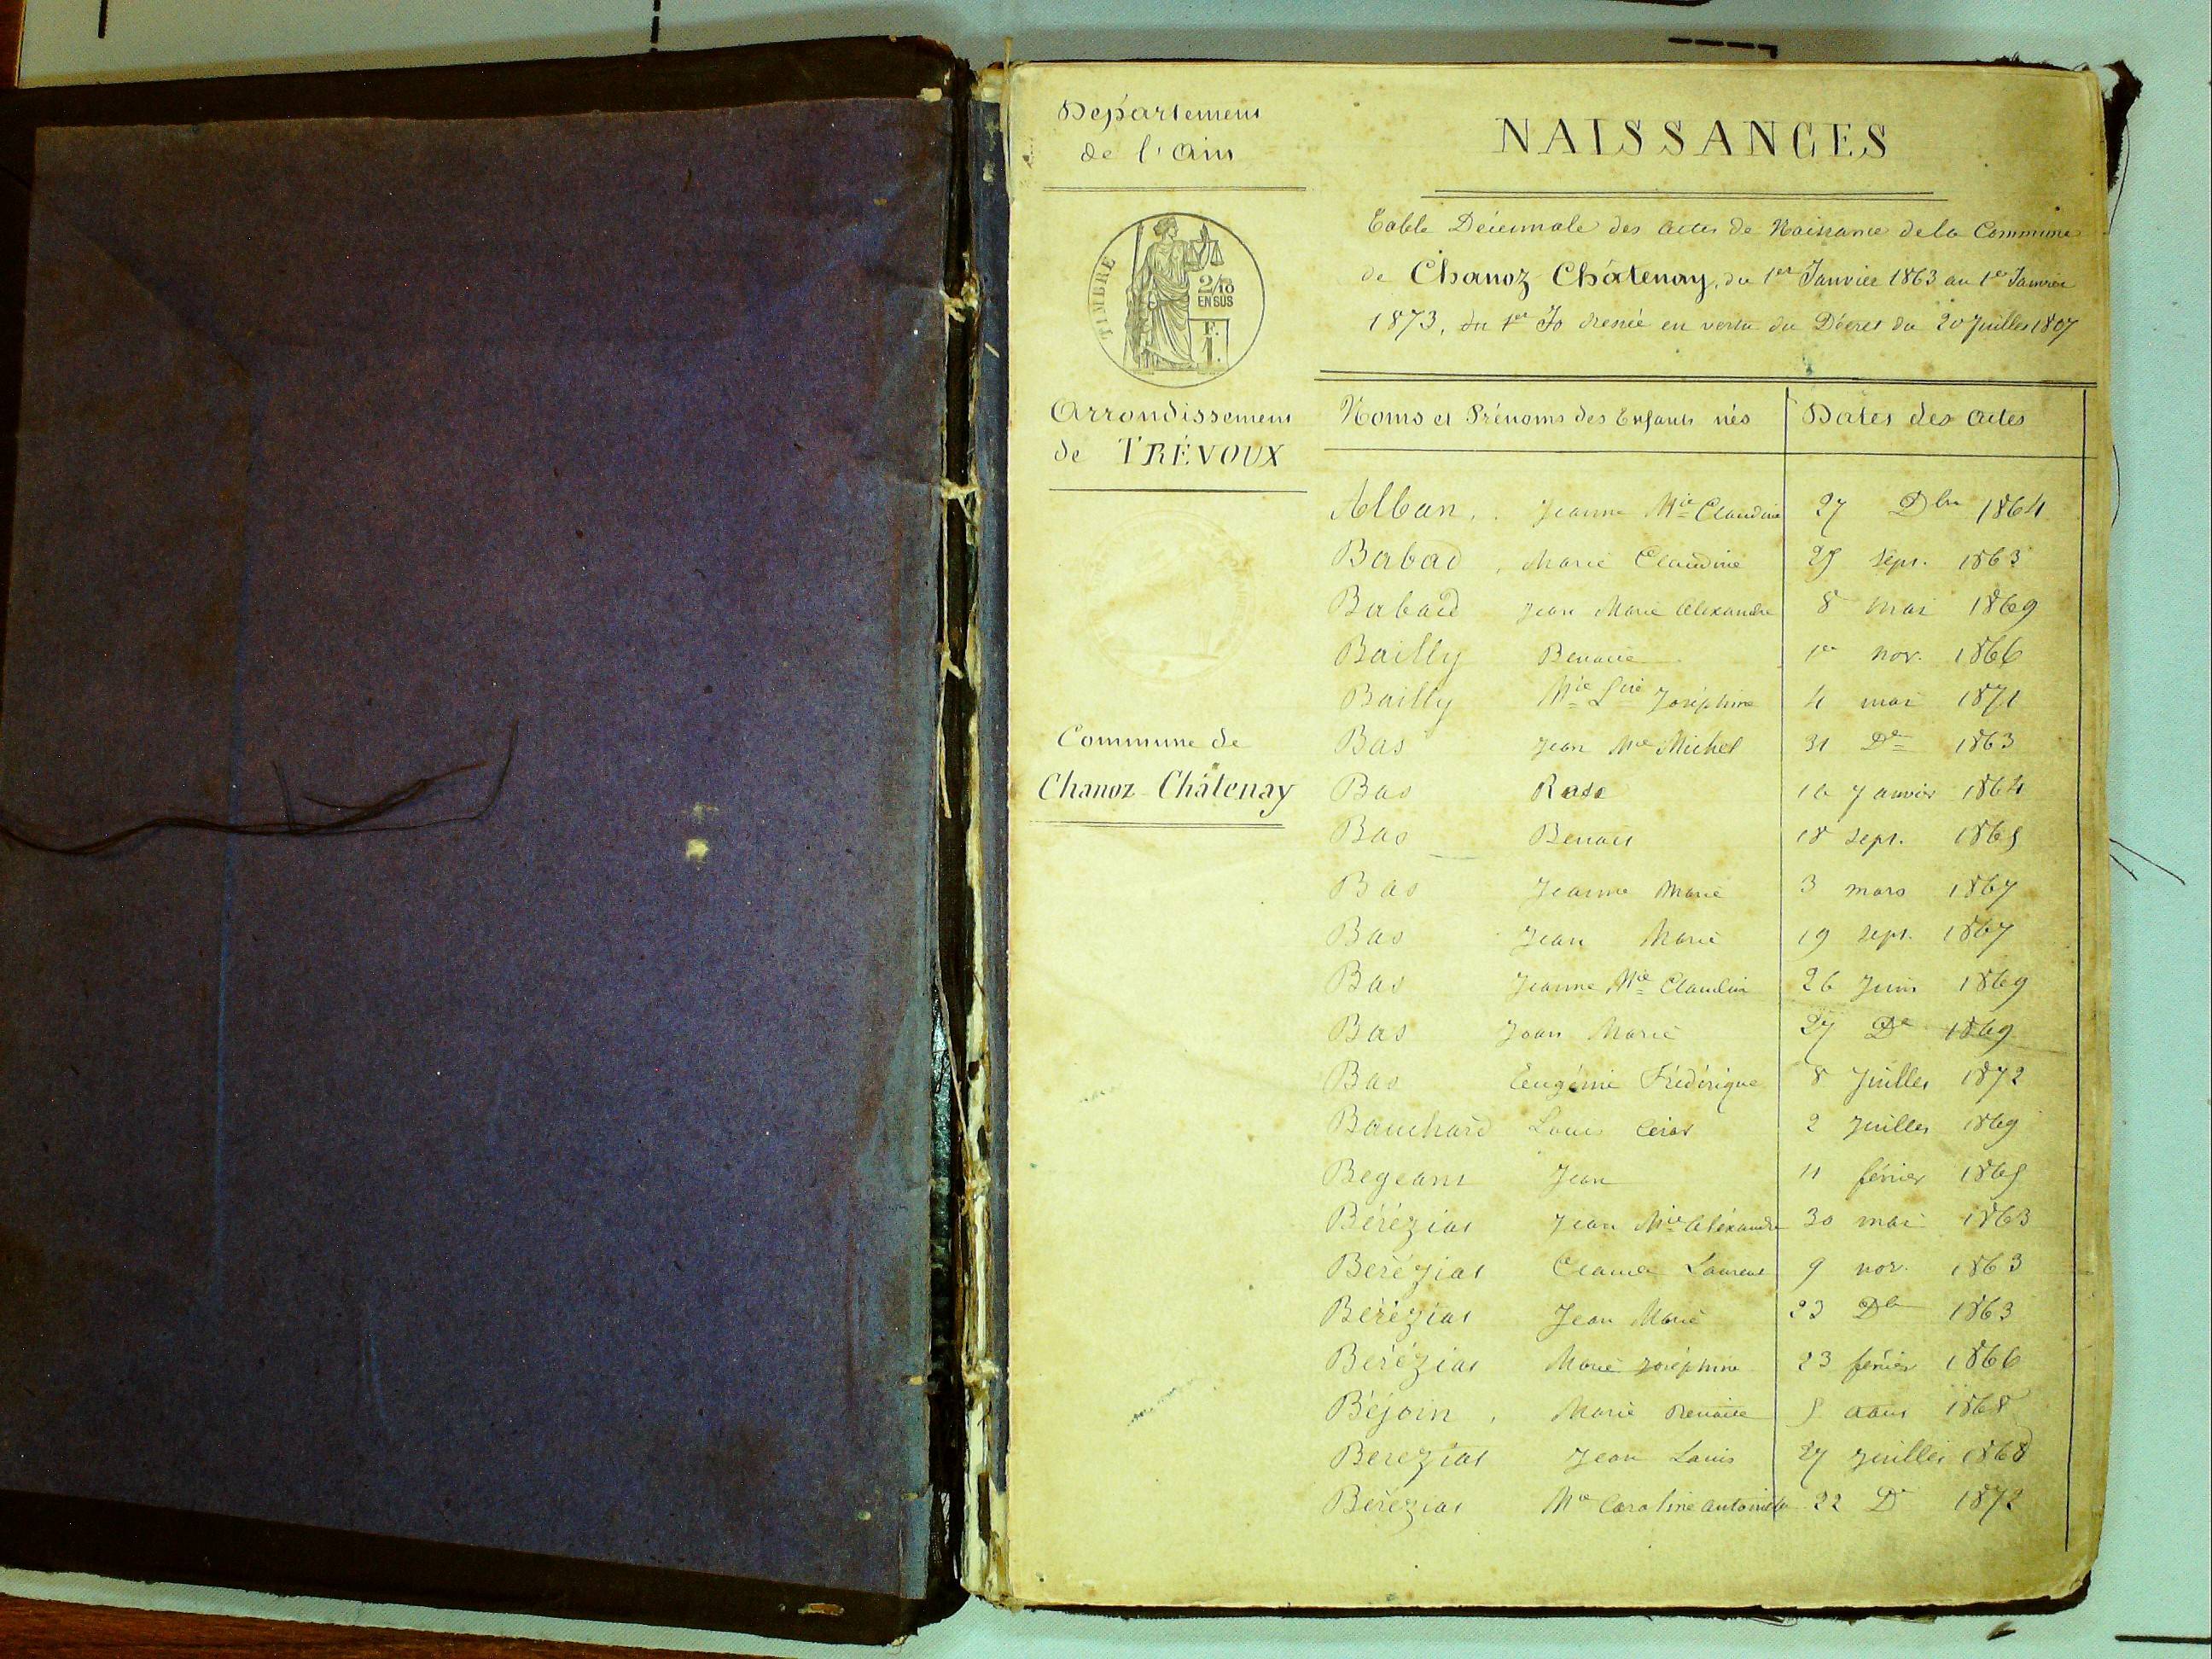 Département
de l'Ain
TIMBRE
2/10
EN SUS
F.
1.
Arrondissement
de TRÉVOUX
Commune de
Chanoz-Châtenay
NAISSANCES
Table Décennale des actes de Naissance de la Commune
de Chanoz-Châtenay, du 1er Janvier 1863 au 1er Janvier
1873, du 1er Ja dressée en vertu du Décret du 20 Juillet 1807
Noms et Prénoms des Enfants nés Dates des actes
Alban, Jeanne Mie Claudine 27 Dbre 1864
Babad, Marie Claudine 25 sept. 1863
Babad Jean Marie Alexandre 8 mai 1869
Bailly Benoite 1er nov. 1866
Bailly Mie Joséphine 4 mai 1871
Bas Jean Mie Michel 31 De 1863
Bas Rose Janvier 1864
Bas Benoit 18 sept. 1865
Bas Jeanne Marie 3 mars 1867
Bas Jean Marie 19 sept. 1867
Bas Jeanne Mie Claudine 26 Juin 1869
Bas Jean Marie 27 De 1869
Bas Eugénie Frédérique 8 Juillet 1872
Bauchard Louis 2 Juillet 1869
Begeant Jean 11 février 1865
Béréziat Jean Mie Alexandre 30 mai 1863
Béréziat Claude Laurent 9 nov. 1863
Béréziat Jean Marie 23 Dbre 1863
Béréziat Marie Joséphine 23 février 1866
Béjoin, Marie Benoite 5 aout 1868
Bereziat Jean Louis 27 Juillet 1868
Béréziat Mie Caroline Antoinette 22 De 1872